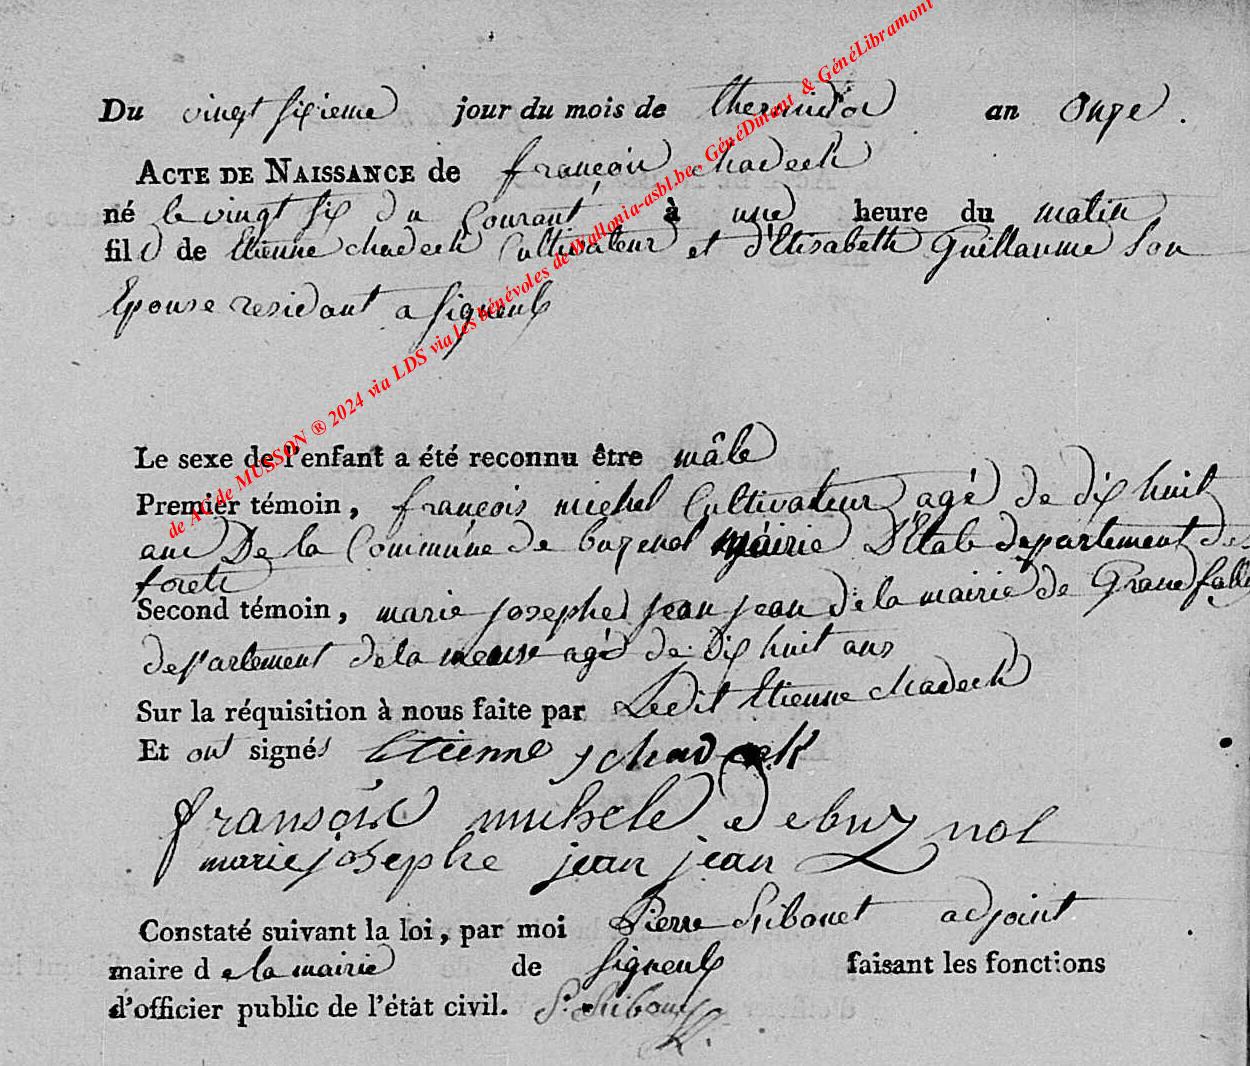 Du vingt sixieme jour du mois de thermidor an onze.
ACTE DE NAISSANCE de françois chadeck
né le vingt six du Courant à une heure du matin
fils de Etienne chadeck Cultivateur et d'Elisabeth Guillaume Son
Epouse residant a Signeulx
Le sexe de l'enfant a été reconnu être mâle
Premier témoin, françois michel Cultivateur agé de dix huit
ans De la Commune de buzenol mairie D'Etale departement des
forets
Second témoin, marie josephe jean jean de la mairie de Grand failly
departement de la meuse agé de dix huit ans
Sur la réquisition à nous faite par Ledit Etienne chadeck
Et ont signés Etienne schadeck
fransois michele de buznol
marie josephe jean jean
Constaté suivant la loi, par moi Pierre adjoint
maire de la mairie de Signeulx faisant les fonctions
d'officier public de l'état civil. P.
de AC de MUSSON ® 2024 via LDS via les bénévoles de Wallonia-asbl.be, GénéDinant & GénéLibramont